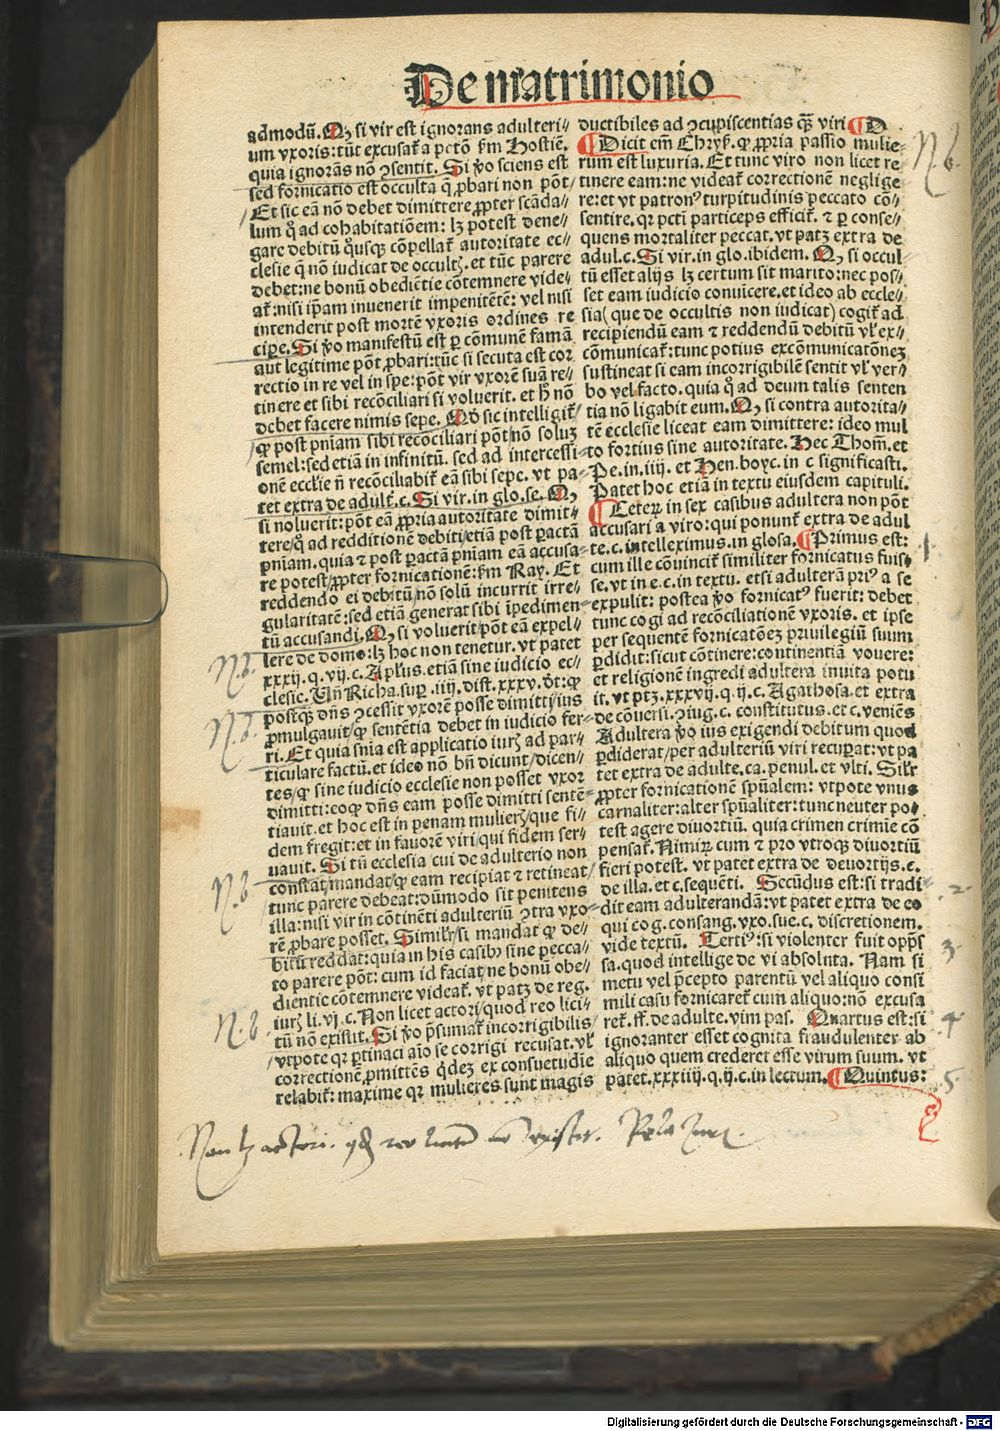 De matrimonio
admodū. Qꝫ si vir est ignorans adulteri//
um vxoris: tūc excusat᷑ a pctō ẜm Hostiē.
quia ignorās nō ꝯsentit. Si ꝟo sciens est
sed fornicatio est occulta q̄ ꝓbari non pōt/
Et sic eā nō debet dimittere ꝓpter scāda//
lum q̊ ad cohabitatiōem: lꝫ potest dene//
gare debitū q̊usqꝫ cōpellat᷑ autoritate ec//
clesie q̄ nō iudicat de occultꝭ. et tūc parere
debet: ne bonū obediētie cōtemnere vide//
at᷑: nisi ip̄am inuenerit impenitētē: vel nisi
intenderit post mortē vxoris ordines re
cipe. Si ꝟo manifestū est ꝑ cōmunē famā
aut legitime pōt ꝓbari: tūc si secuta est cor
rectio in re vel in spe: pōt vir vxorē suā re//
tinere et sibi recōciliari si voluerit. et hͦ nō
debet facere nimis sepe. Qd̓ sic intelligit᷑/
ꝙ post pn̄iam sibi recōciliari pōt/nō soluꝫ
semel: sed etiā in infinitū. sed ad intercessi//
onē eccl̓ie n̄ recōciliabit᷑ eā sibi sepe. vt pa//
tet extra de adult̓. c. Si vir. in glo. se. Qꝫ
si noluerit: pōt eā ꝓpria autoritate dimit//
tere/q̊ ad redditionē debiti/etiā post ꝑactā
pn̄iam. quia ⁊ post ꝑactā pn̄iam eā accusa//
re potest/ꝓpter fornicationē: ẜm Ray. Et
reddendo ei debitū/nō solū incurrit irre//
gularitatē: sed etiā generat sibi īpedimen//
tū accusandi. Qꝫ si voluerit/pōt eā expel//
lere de domo: lꝫ hoc non tenetur. vt patet
xxxij. q. vij. c. Apl̓us. etiā sine iudicio ec//
clesie. Vn̄ Richa. suꝑ. iiij. dist. xxxv. dt̄: ꝙ
postq̄ꝫ dn̄s ꝯcessit vxorē posse dimitti/ius
ꝓmulgauit/ꝙ sentētia debet in iudicio fer//
ri. Et quia sn̄ia est applicatio iurꝭ ad par//
ticulare factū. et ideo nō bn̄ dicunt/dicen//
tes/ꝙ sine iudicio ecclesie non posset vxor
dimitti: eoqꝫ dn̄s eam posse dimitti sentē//
tiauit. et hoc est in penam mulierꝭ/que fi//
dem fregit: et in fauorē viri/qui fidem ser//
uauit. Si tn̄ ecclesia cui de adulterio non
constat/mandat/ꝙ eam recipiat ⁊ retineat/
tunc parere debeat: dūmodo sit penitens
illa: nisi vir in cōtinēti adulteriū ꝯtra vxo//
rē ꝓbare posset. Simil̓r/si mandat ꝙ de//
bitū reddat: quia in his casibꝰ sine pecca//
to parere pōt: cum id faciat/ne bonū obe//
dientie cōtemnere videat᷑. vt patꝫ de reg.
iurꝭ li. vj. c. Non licet actori/quod reo lici//
tū nō existit. Si ꝟo p̄sumat᷑ incorrigibilis/
vtpote qꝛ ꝑtinaci aīo se corrigi recusat. vl̓
correctionē ꝓmittēs q̇dez ex consuetudīe
relabit᷑: maxime qꝛ mulieres sunt magis
ductibiles ad ꝯcupiscentias q̄ꝫ viri D
Dicit em̄ Chryſ. ꝙ ꝓpria passio mulie//
rum est luxuria. Et tunc viro non licet re//
tinere eam: ne videat᷑ correctionē neglige//
re: et vt patronꝰ turpitudinis peccato cō//
sentire. qꝛ pctī particeps efficit᷑. ⁊ ꝑ conse//
quens mortaliter peccat. vt patꝫ extra de
adul. c. Si vir. in glo. ibidem. Qꝫ si occul//
tū esset alijs lꝫ certum sit marito: nec pos//
set eam iudicio conuicere. et ideo ab eccle//
sia (que de occultis non iudicat) cogit᷑ ad
recipiendū eam ⁊ reddendū debitū vl̓ ex//
cōmunicat᷑: tunc potius excōmunicatōnez
sustineat si eam incorrigibilē sentit vl̓ ver//
bo vel facto. quia q̊ ad deum talis senten
tia nō ligabit eum. Qꝫ si contra autorita//
tē ecclesie liceat eam dimittere: ideo mul
to fortius sine autoritate. Hec Thom̄. et
Pe. in. iiij. et Hen. boyc. in c significasti.
Patet hoc etiā in textu eiusdem capituli.
Ceterꝫ in sex casibus adultera non pōt
accusari a viro: qui ponunt᷑ extra de adul
te. c. intelleximus. in glosa. Primus est:
cum ille cōuincit᷑ similiter fornicatus fuis//
se. vt in e. c. in textu. etsi adulterā priꝰ a se
expulit: postea ꝟo fornicatꝰ fuerit: debet
tunc cogi ad recōciliationē vxoris. et ipse
per sequentē fornicatōez priuilegiū suum
ꝑdidit: sicut cōtinere: continentiā vouere:
et religionē ingredi adultera inuita potu
it. vt ptꝫ. xxxvij. q. ij. c. Agathosa. et extra
de cōuersi. ꝯiug. c. constitutus. et c. veniēs
Adultera ꝟo ius exigendi debitum quod
ꝑdiderat/per adulteriū viri recuꝑat: vt pa
tet extra de adulte. ca. penul. et vlti. Sil̓r
ꝓpter fornicationē spūalem: vtpote vnus
carnaliter: alter spūaliter: tunc neuter po//
test agere diuortiū. quia crimen crimīe cō
pensat᷑. Nimiꝝ cum ⁊ pro vtroqꝫ diuortiū
fieri potest. vt patet extra de deuortijs. c.
de illa. et c. sequēti. Secūdus est: si tradi//
dit eam adulterandā: vt patet extra de eo
qui cog. consang. vxo. sue. c. discretionem.
vide textū. Tertiꝰ: si violenter fuit opp̄s
sa. quod intellige de vi absoluta. Nam si
metu vel p̄cepto parentū vel aliquo consi
mili casu fornicaret᷑ cum aliquo: nō excusa
ret᷑. ff. de adulte. vim pas. Quartus est: si
ignoranter esset cognita fraudulenter ab
aliquo quem crederet esse virum suum. vt
patet. xxxiiij. q. ij. c. in lectum. Quintus:
N.b.
N.b.
N.b.
N.b.
N.b.
1.
2.
3.
4.
5.
Non lꝫ actori. qd̓ reo licitū nō existit.
Digitalisierung gefördert durch die Deutsche Forschungsgemeinschaft - DFG